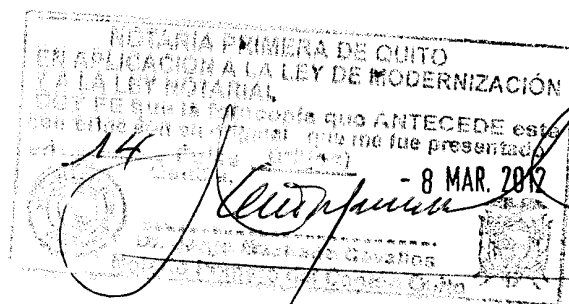 NOTARIA PRIMERA DE QUITO
EN APLICACION A LA LEY DE MODERNIZACIÓN
Y A LA LEY NOTARIAL
DOY FE que la fotocopia que ANTECEDE está
con original que me fue presentado
en 14
- 8 MAR. 2012
Dr. Jorge Machado Cevallos
Quito